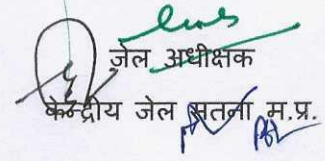 जेल अधीक्षक
केन्द्रीय जेल सतना म.प्र.